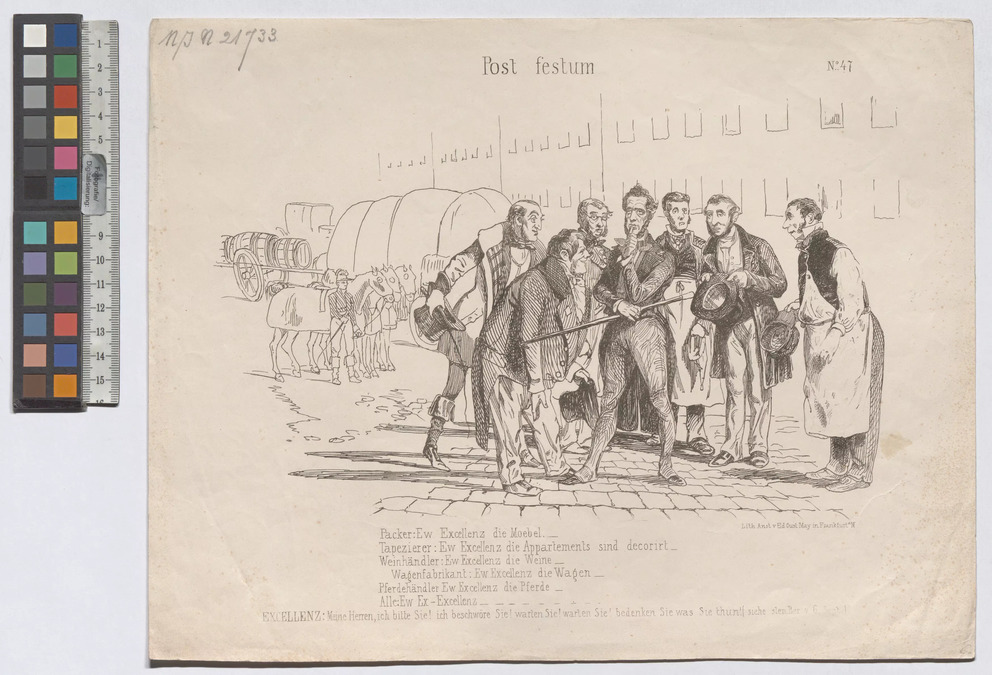 21733
Post festum
No. 47
Lith. Anst. v. Ed. Gust. May in Frankfurt a/M
Packer: Ew Excellenz die Moebel. _
Tapezierer: Ew Excellenz die Appartements sind decorirt _
Weinhändler: Ew Excellenz die Weine _
Wagenfabrikant: Ew Excellenz die Wagen _
Pferdehändler Ew Excellenz die Pferde _
Alle: Ew Ex-Excellenz _ _ _ _ _ _
EXCELLENZ: Meine Herren, ich bitte Sie! ich beschwöre Sie! warten Sie! warten Sie! bedenken Sie was Sie thun!
1
2
3
4
5
9
10
11
12
13
14
15
Fotografie/
Digitalisierung